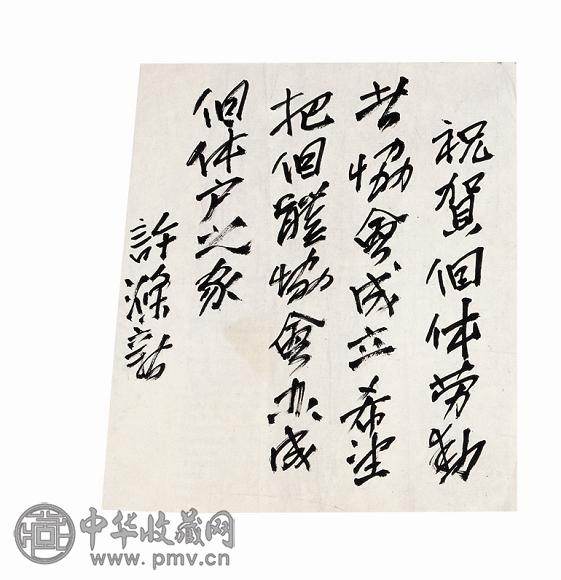 祝賀個体劳動
者協會成立希望
把個體協會办成
個体户之家
許滌新
中华收藏网
www.pmv.cn